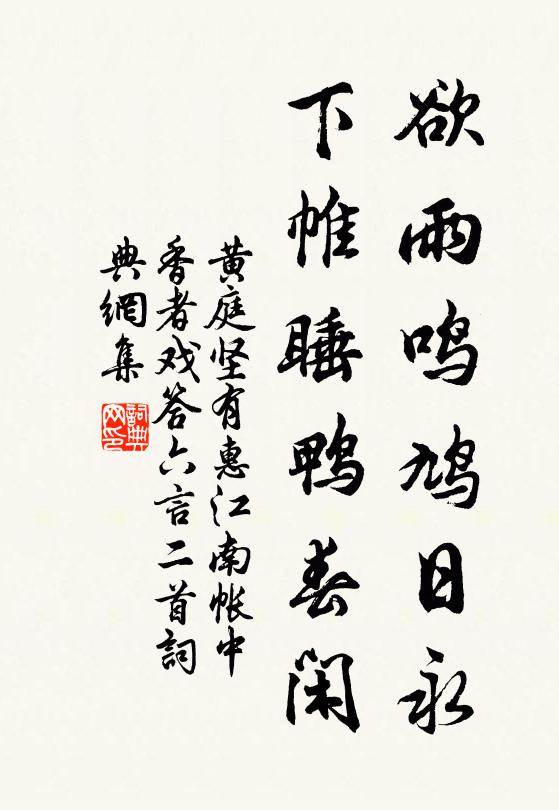 欲雨鸣鸠日永
下帷睡鸭春闲
黄庭坚有惠江南帐中
香者戏答六言二首詞
典網集
詞典网印